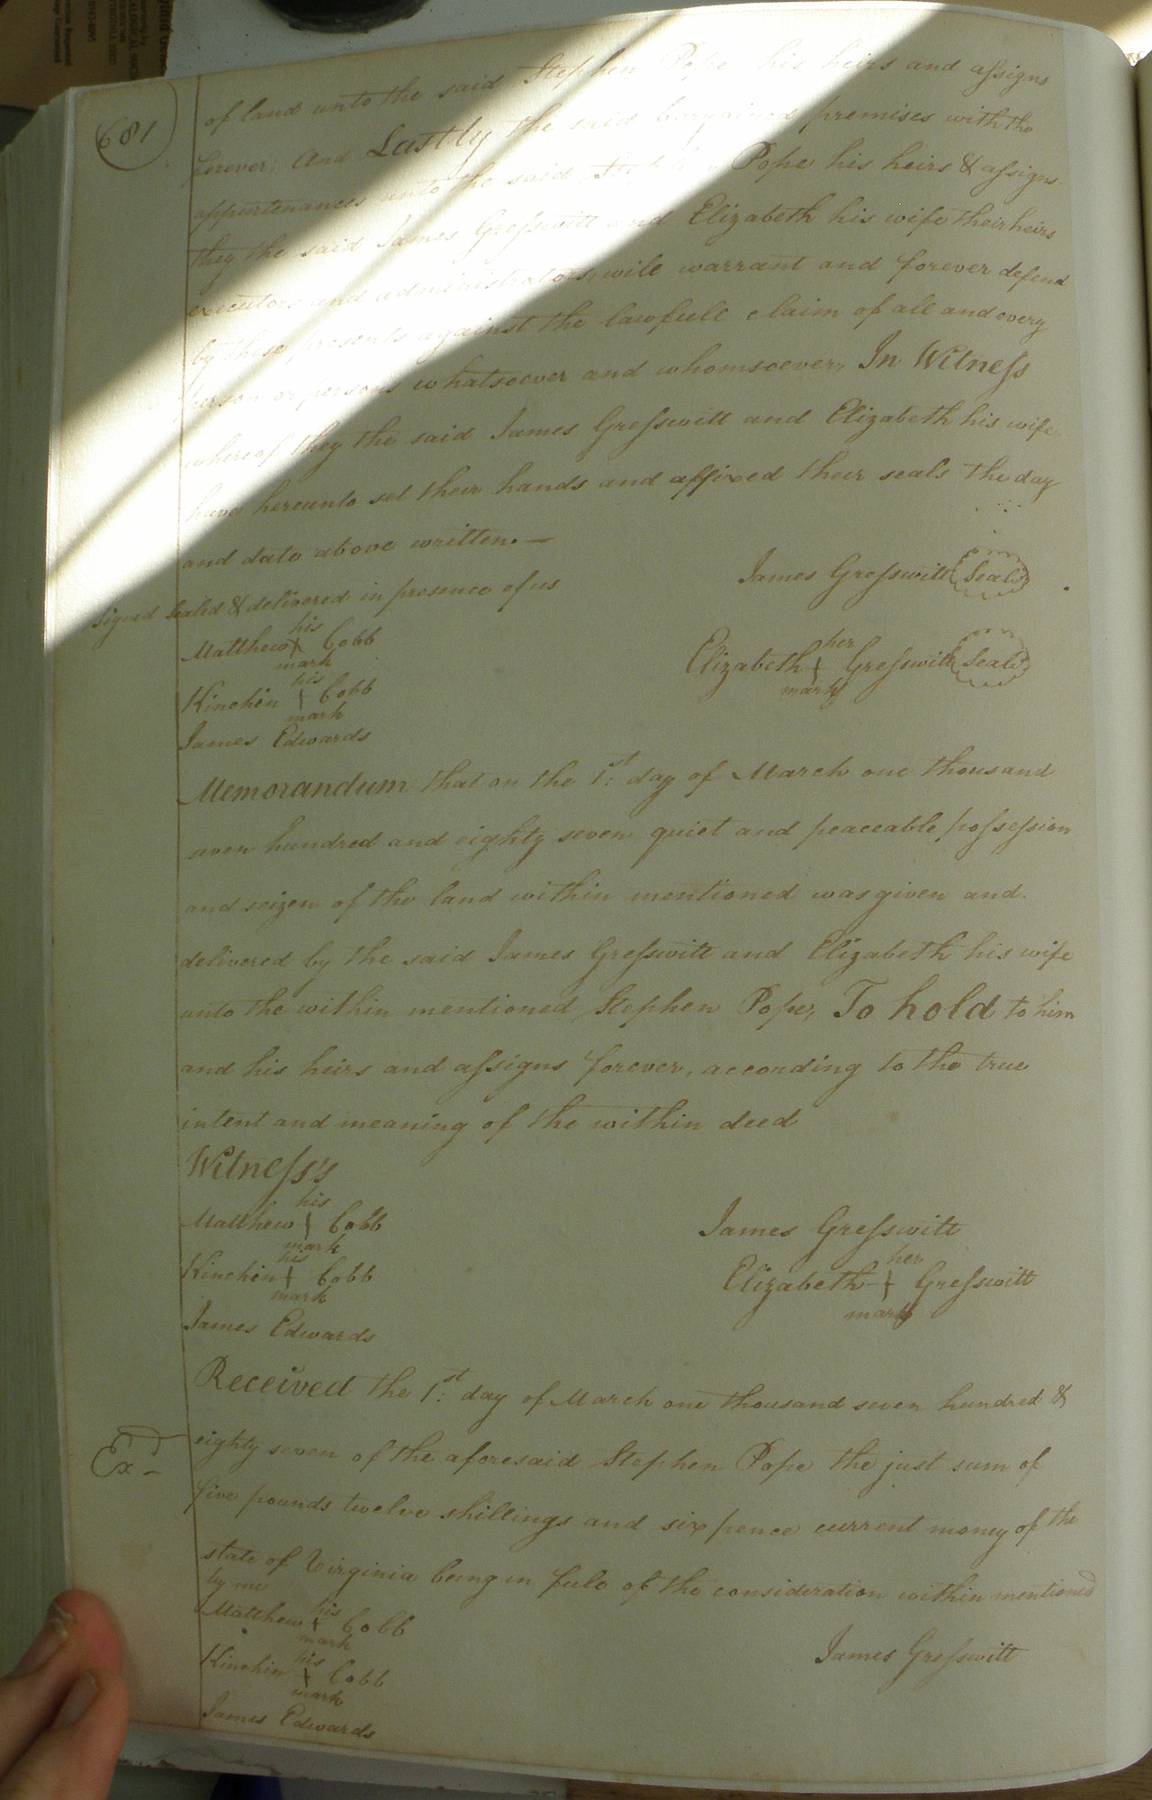 681
of land unto the said Stephen Pope his heirs and assigns
forever, And Lastly the said bargained premises with the
appurtenances unto the said Stephen Pope his heirs & assigns
they the said James Gresswitt and Elizabeth his wife their heirs
executors and administrators, will warrant and forever defend
by these presents against the lawfull claim of all and every
person or persons whatsoever and whomsoever, In Witness
whereof they the said James Gresswitt and Elizabeth his wife
have hereunto set their hands and affixed their seals the day
and date above written. —
Signed Sealed & delivered in presence of us
James Gresswitt Seal
his
Matthew Cobb
mark
her
Elizabeth Gresswitt Seal
mark
his
Kinchin Cobb
mark
James Edwards
Memorandum that on the 1st day of March one thousand
seven hundred and eighty seven quiet and peaceable possession
and seizen of the land within mentioned was given and
delivered by the said James Gresswitt and Elizabeth his wife
unto the within mentioned Stephen Pope, To hold to him
and his heirs and assigns forever, according to the true
intent and meaning of the within deed
Witness's
his
Matthew Cobb
mark
James Gresswitt
his
Kinchin Cobb
mark
her
Elizabeth Gresswitt
mark
James Edwards
Received the 1st day of March one thousand seven hundred &
Exd
eighty seven of the aforesaid Stephen Pope the just sum of
five pounds twelve shillings and six pence current money of the
state of Virginia being in full of the consideration within mentioned
by me
his
Matthew Cobb
mark
James Gresswitt
his
Kinchin Cobb
mark
James Edwards